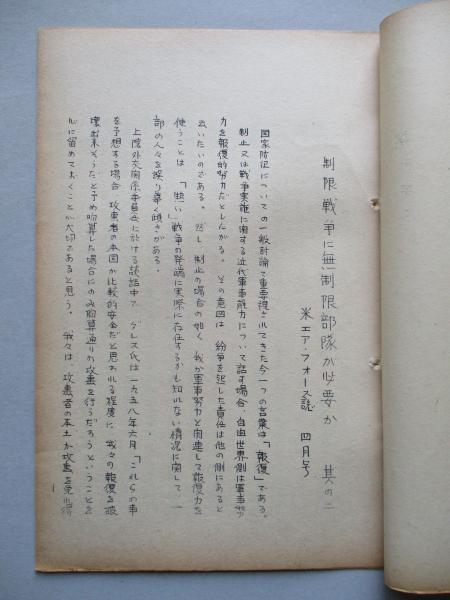 制限戦争に無制限部隊が必要か 其の二
米エア・フォース誌 四月号
国家防衛についての一般討論で重要視されてきた今一つの言葉は「報復」である。
制止又は戦争実施に関する近代軍事能力について話す場合、自由世界側は軍事努
力を報復的努力だとしたがる。その意図は紛争を起した責任は他の側にあると
云いたいのである。然し制止の場合の如く我が軍事努力と関連して報復力を
使うことは「熱い」戦争の発端に実際に存在するかも知れない情況に関して一
部の人々を誤り導く傾きがある。
上院外交関係委員会に於ける談話中でダレス氏は一九五八年六月「これらの事
を予想する場合、攻撃者の本国が比較的安全だと思われる程度に我々の報復を破
壊出来そうだと予め胸算した場合にのみ胸算通りの攻撃を行うだろうということを
心に留めておくことが大切であると思う。我々は、攻撃者の本土が攻撃を免れ得
1